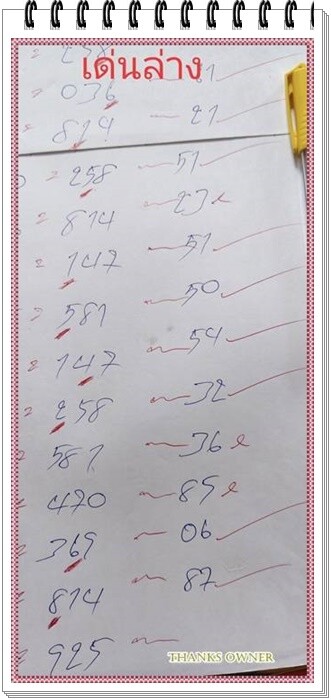 เด่นล่าง
= 036
= 814 — 21
= 258 — 51
= 814 — 23 x
= 147 — 51
= 581 — 50
= 147 — 54
= 258 — 32
= 581 — 36 x
= 470 — 85 x
= 369 — 06
= 814 — 87
= 925 —
THANKS OWNER